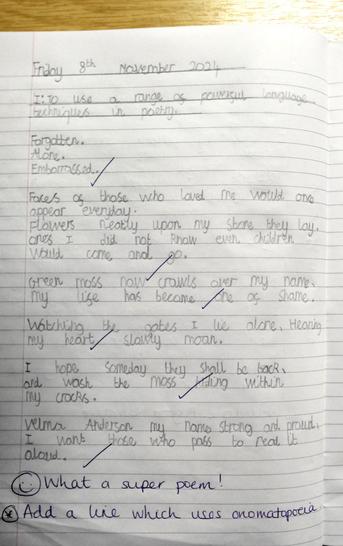 Friday 8th November 2024
I: To use a range of powerful language
techniques in poetry.
Forgotten.
Alone.
Embarrassed.
Faces of those who loved me would once
appear everyday.
Flowers neatly upon my stone they lay.
ones I did not know even children
would come and go.
Green moss now crawls over my name,
my life has become one of shame.
Watching the gates I lie alone, Hearing
my heart slowly moan.
I hope someday they shall be back,
and wash the moss hiding within
my cracks.
Velma Anderson my name strong and proud,
I want those who pass to read it
aloud.
What a super poem!
Add a line which uses onomatopoeia.